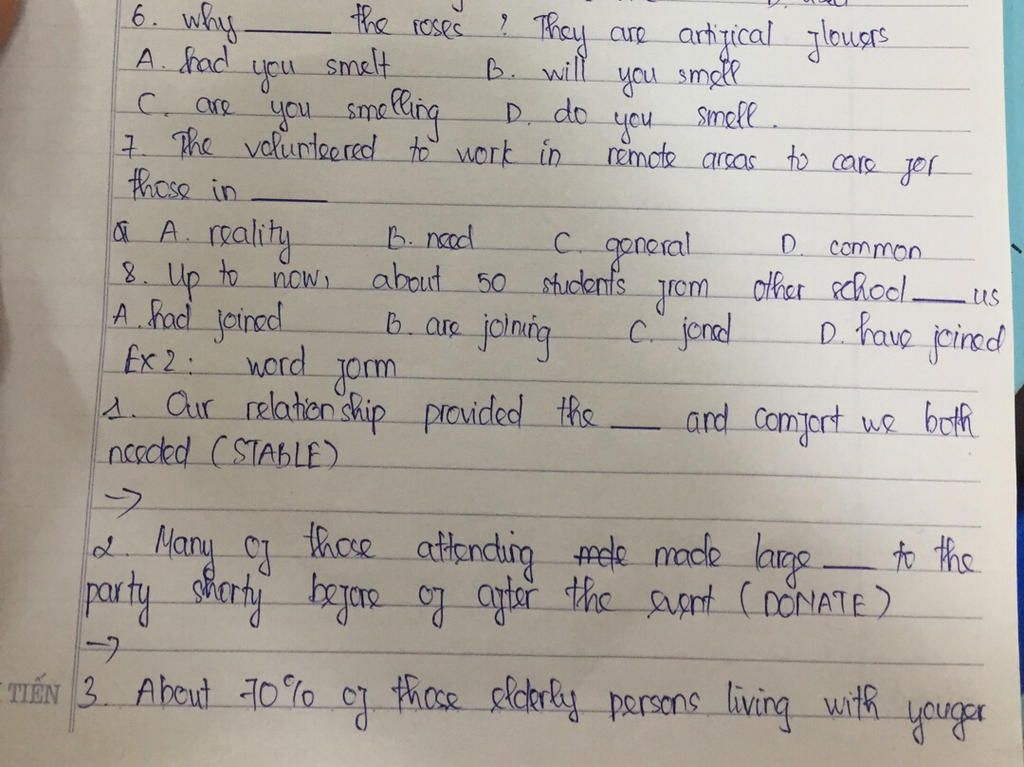 6. Why ______ the roses ? They are artifical flowers
A. had you smelt B. will you smell
C. are you smelling D. do you smell.
7. The volunteered to work in remote areas to care for
those in ______
A. reality B. need C. general D. common
8. Up to now, about 50 students from other school ____ us
A. had joined B. are joining C. joned D. have joined
Ex 2: word form
1. Our relationship provided the ___ and comfort we both
needed (STABLE)
→
2. Many of those attending made large ___ to the
party shorty before of after the event (DONATE)
→
TIẾN
3. About 70% of those elderly persons living with youger